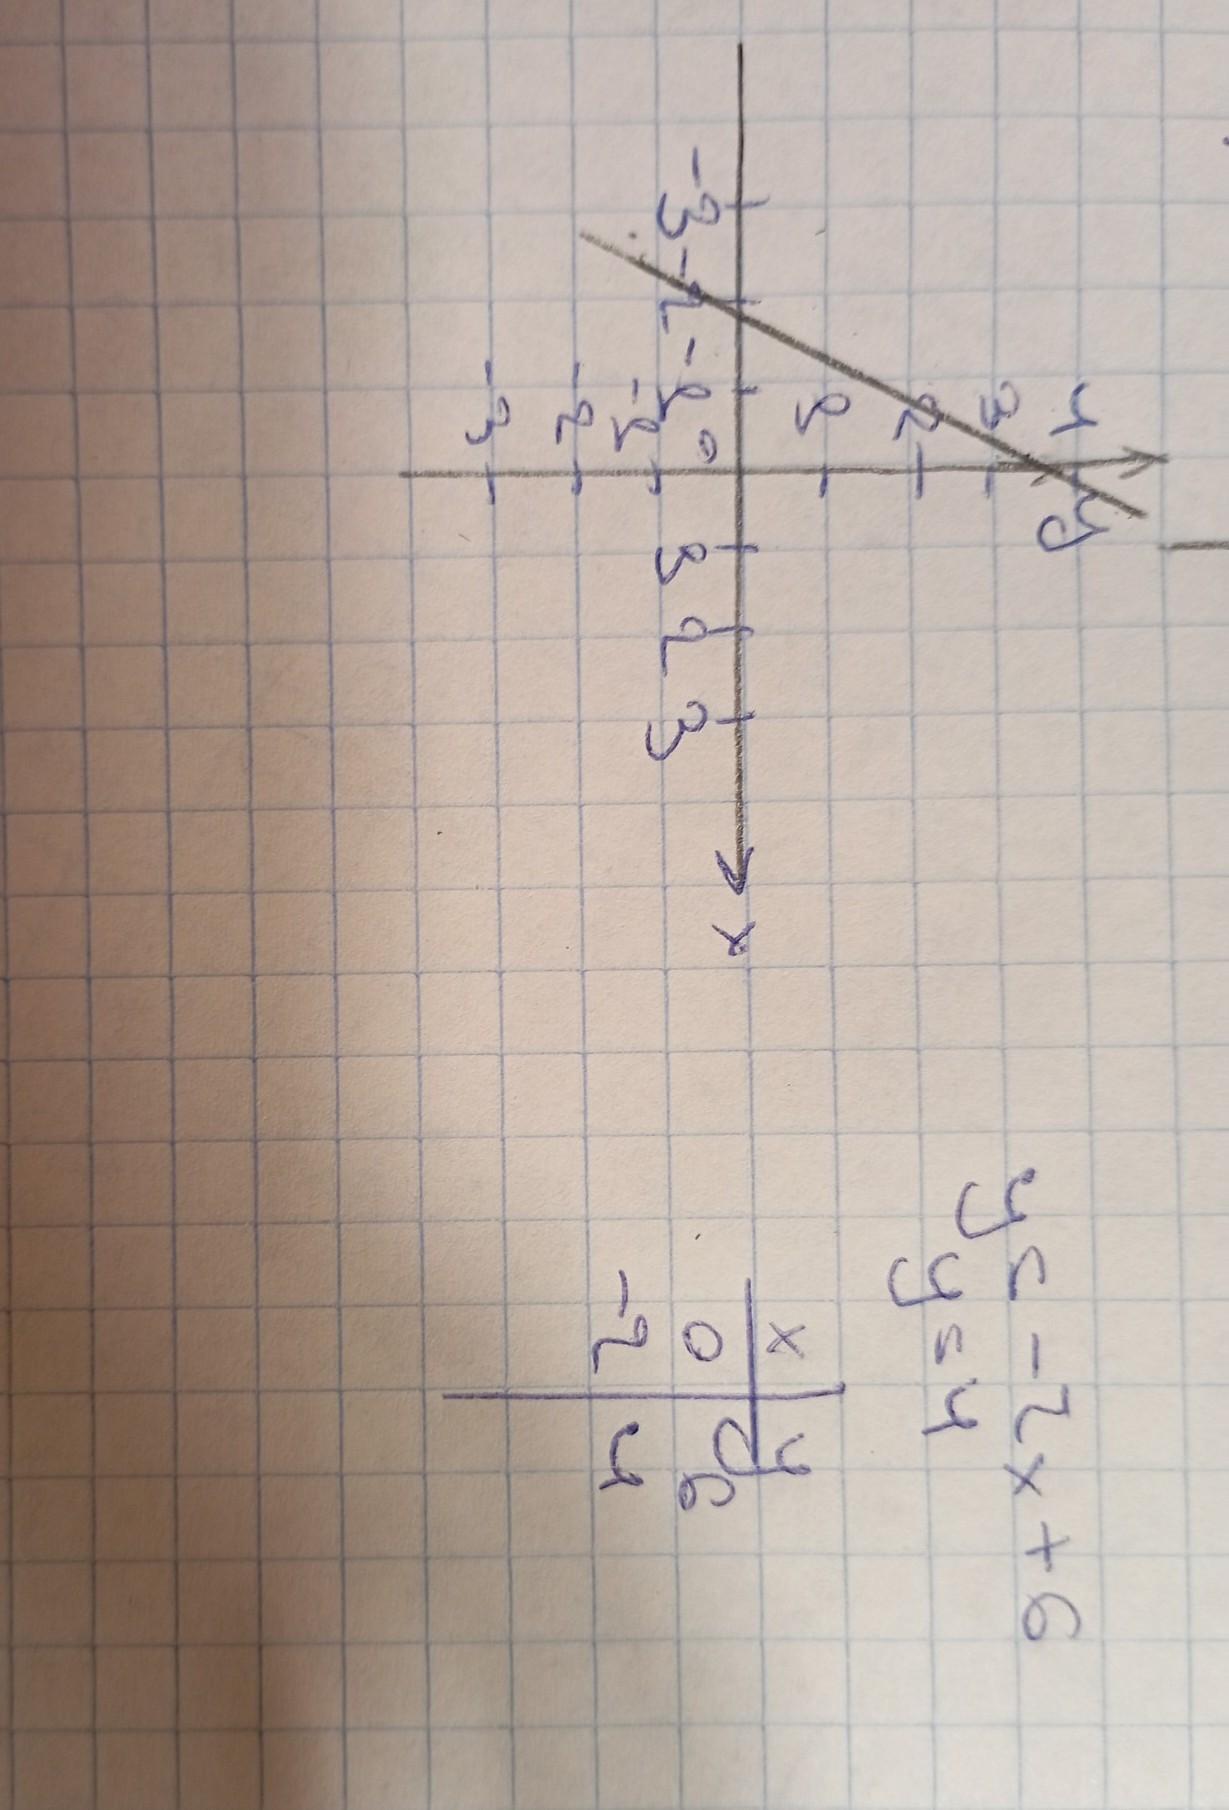 y
4
3
2
1
-3 -2 -1 0 1 2 3 x
-1
-2
-3
y = -2x + 6
y = 4
x y
0 6
-2 4